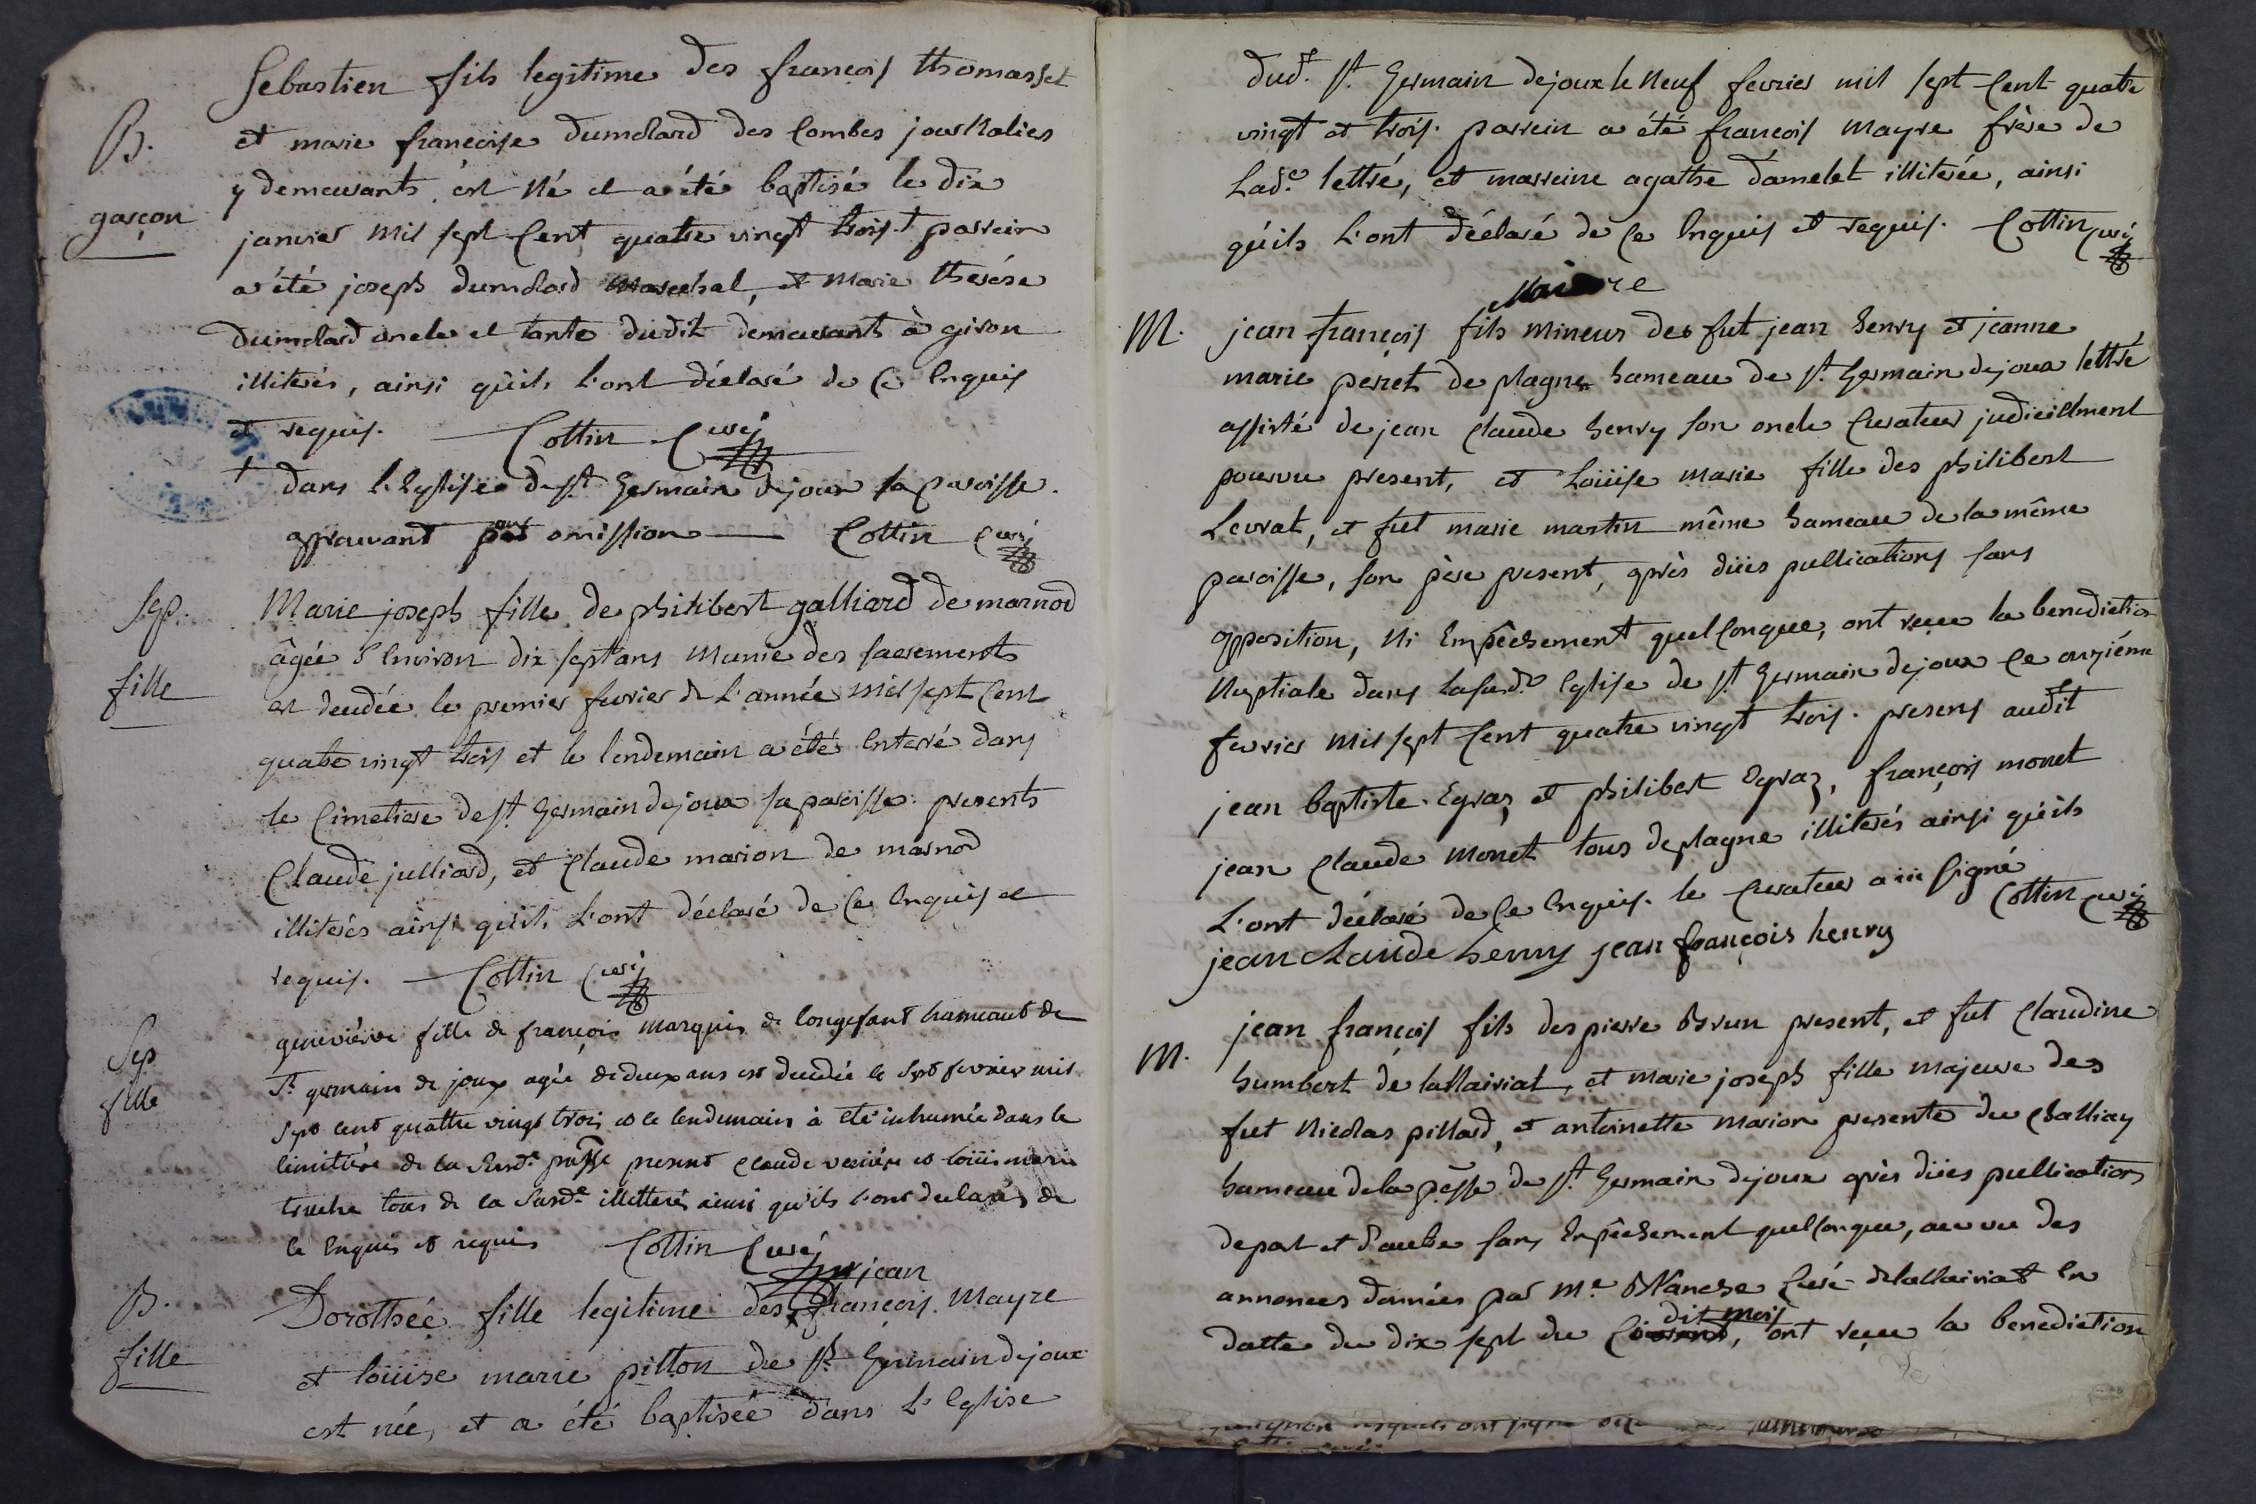 Sebastien fils legitime des françois thomasset
B.
et marie françoise dumolard des Combes journalies
y demeurants, est né et a été baptisé le dix
garçon
janvier mil sept Cent quatre vingt trois † parrein
a été joseph dumolard marechal, et marie therése
Dumolard oncle et tante dudit demeurants à giron
illiterés, ainsi qu'ils L'ont déclaré de Ce Enquis
et requis. Cottin Curé
† dans L'Eglise de st. Germain dejoux sa paroisse.
approuvant par omission Cottin Curé
Sep.
fille
Marie joseph fille de philibert galliard de marnod
âgée d'Environ dix sept ans munie des sacrements
est decedée le premier fevrier de L'année mil sept Cent
quatre vingt trois et le lendemain a été Enterré dans
le Cimetiere de st. Germain dejoux sa paroisse presents
Claude julliard, et Claude marion de marnod
illiterés ainsi qu'ils L'ont déclaré de Ce Enquis et
requis. Cottin Curé
Sep
fille
geneviéve fille de françois marquis de longefant hameaut de
St. germain de joux agée de deux ans est decedée le sept fevrier mil
sept cent quattre vingt trois et le lendemain à eté inhumée dans le
cimitiére de la susde. psse present claude et loüis marie
truche tous de la susde. illitterés ainsi qu'ils l'ont declarés de
ce Enquis et requis Cottin Curé
B.
fille
jean
Dorothée fille legitime des françois Mayre
et loüise marie pitton de st. Germain dejoux
est née, et a été baptisée dans L'Eglise
dudt. st. Germain dejoux le Neuf fevrier mil sept Cent quatre
vingt et trois. parrein a été françois mayre frère de
Lade. lettré, et marreine agathe damelet illiterée, ainsi
qu'ils L'ont déclaré de Ce Enquis et requis. Cottin Curé
Maire
M.
jean françois fils mineur des fut jean henry et jeanne
marie perret de plagne hameau de st. Germain dejoux lettré
assisté de jean Claude henry son oncle Curateur judiciellment
pourvu present, et Loüise marie fille des philibert
Levrat, et fut marie martin même hameau de la même
paroisse, son père present, après düës publications sans
opposition, Ni Empêchement quelconque, ont reçue la benediction
Nuptiale dans lasusde. Eglise de st. Germain dejoux le onziéme
fevrier mil sept Cent quatre vingt trois. presens audit
jean baptiste Egraz et philibert Egraz, françois monet
jean Claude Monet tous deplagne illiterés ainsi qu'ils
L'ont déclaré de Ce Enquis. le Curateur a iii signé
Cottin Curé
jean claude henry jean françois henry
M.
jean françois fils des pierre Brun present, et fut Claudine
humbert de lallairiat, et marie joseph fille majeure des
fut Nicolas pillard, et antoinette marion presente du Challiay
hameau dela psse de st. Germain dejoux après düës publications
depart et d'autre sans Empêchement quelconque, au vu des
annonces données par mr. Blanche Curé delallairiat En
dit mois
datte du dix sept du Courant, ont reçue la benediction